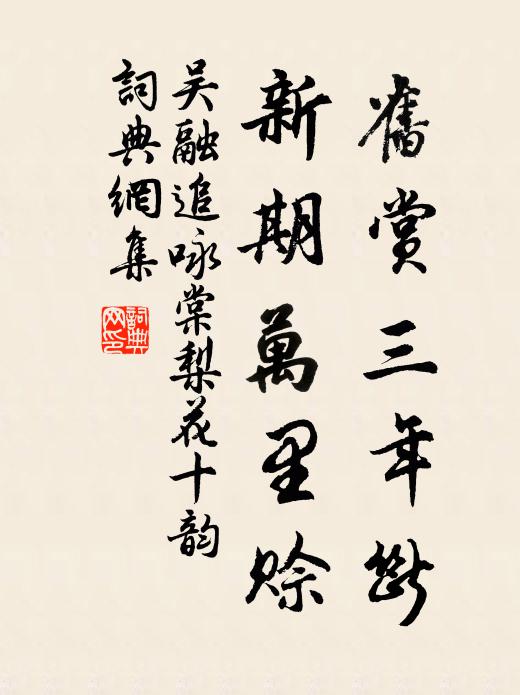 舊賞三年斷
新期萬里賒
吳融追咏棠梨花十韵
詞典網集
詞典
网印